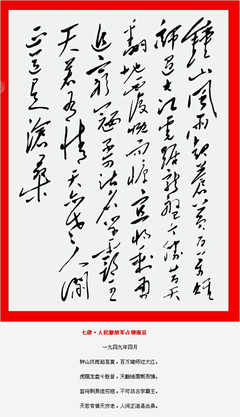 鐘山風雨起蒼黃百萬雄
師過大江虎踞龍盤今勝昔天
翻地覆慨而慷宜將剩勇
追窮寇不可沽名學霸王
天若有情天亦老人間
正道是滄桑
七律・人民解放军占领南京
一九四九年四月
钟山风雨起苍黄，百万雄师过大江。
虎踞龙盘今胜昔，天翻地覆慨而慷。
宜将剩勇追穷寇，不可沽名学霸王。
天若有情天亦老，人间正道是沧桑。